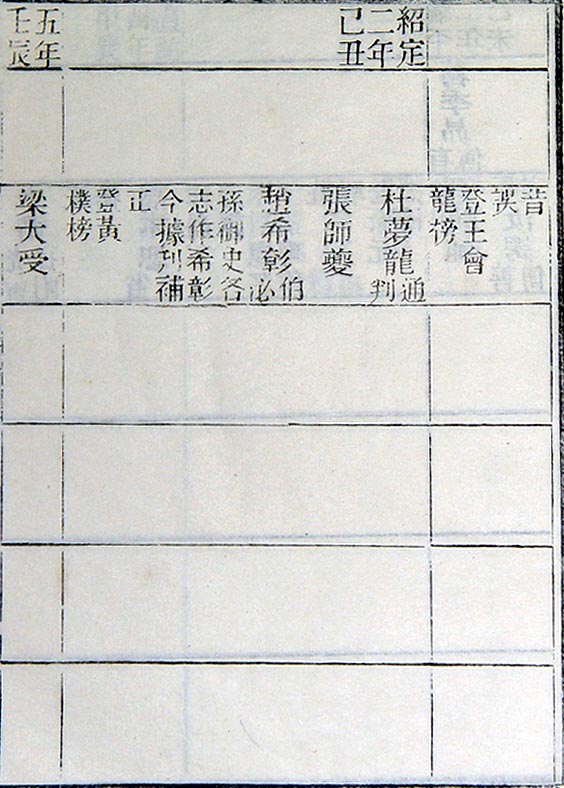 紹定
二年
己丑
五年
壬辰
昔
誤
登王會
龍榜
杜夢龍通
判
張師夔
趙希彰伯
必
孫御史各
志作希彰
今據刋補
正
登黃
樸榜
梁大受